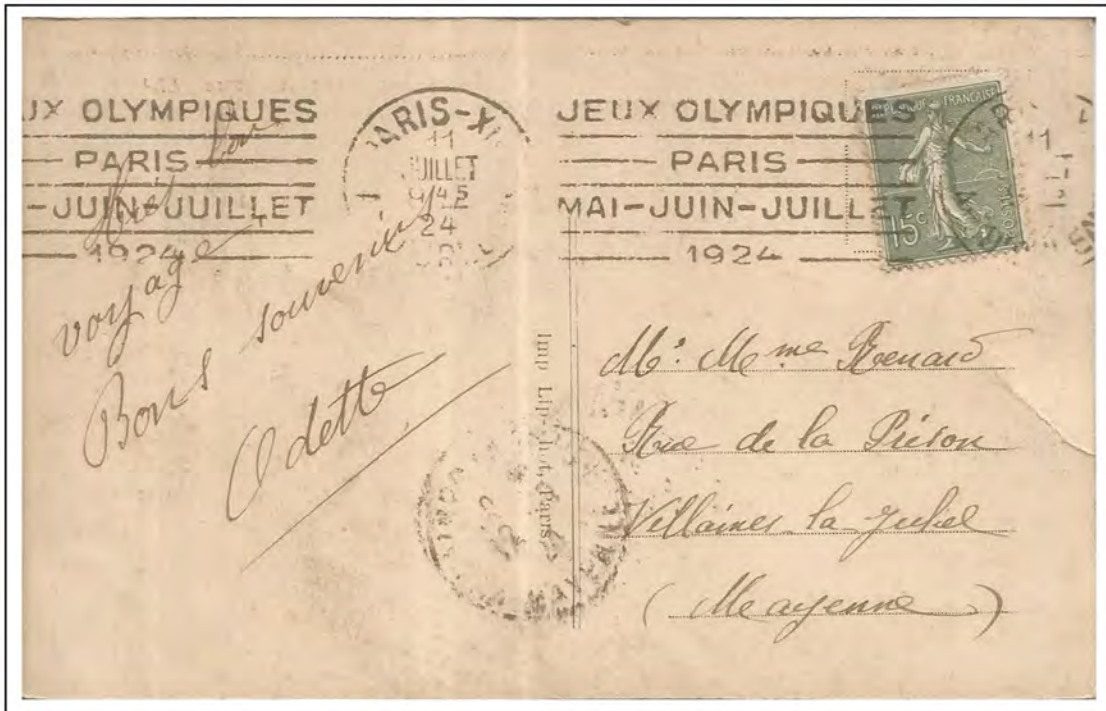 UX OLYMPIQUES
PARIS
-JUIN-JUILLET
1924
PARIS-XI
11
JUILLET
24
JEUX OLYMPIQUES
PARIS
MAI-JUIN-JUILLET
1924
FRANÇAISE
15c
bon
voyage
Bons souvenirs
Odette
Imp Paris
Mr. Mme Renard
Rue de la Prison
Villaines la Juhel
(Mayenne)